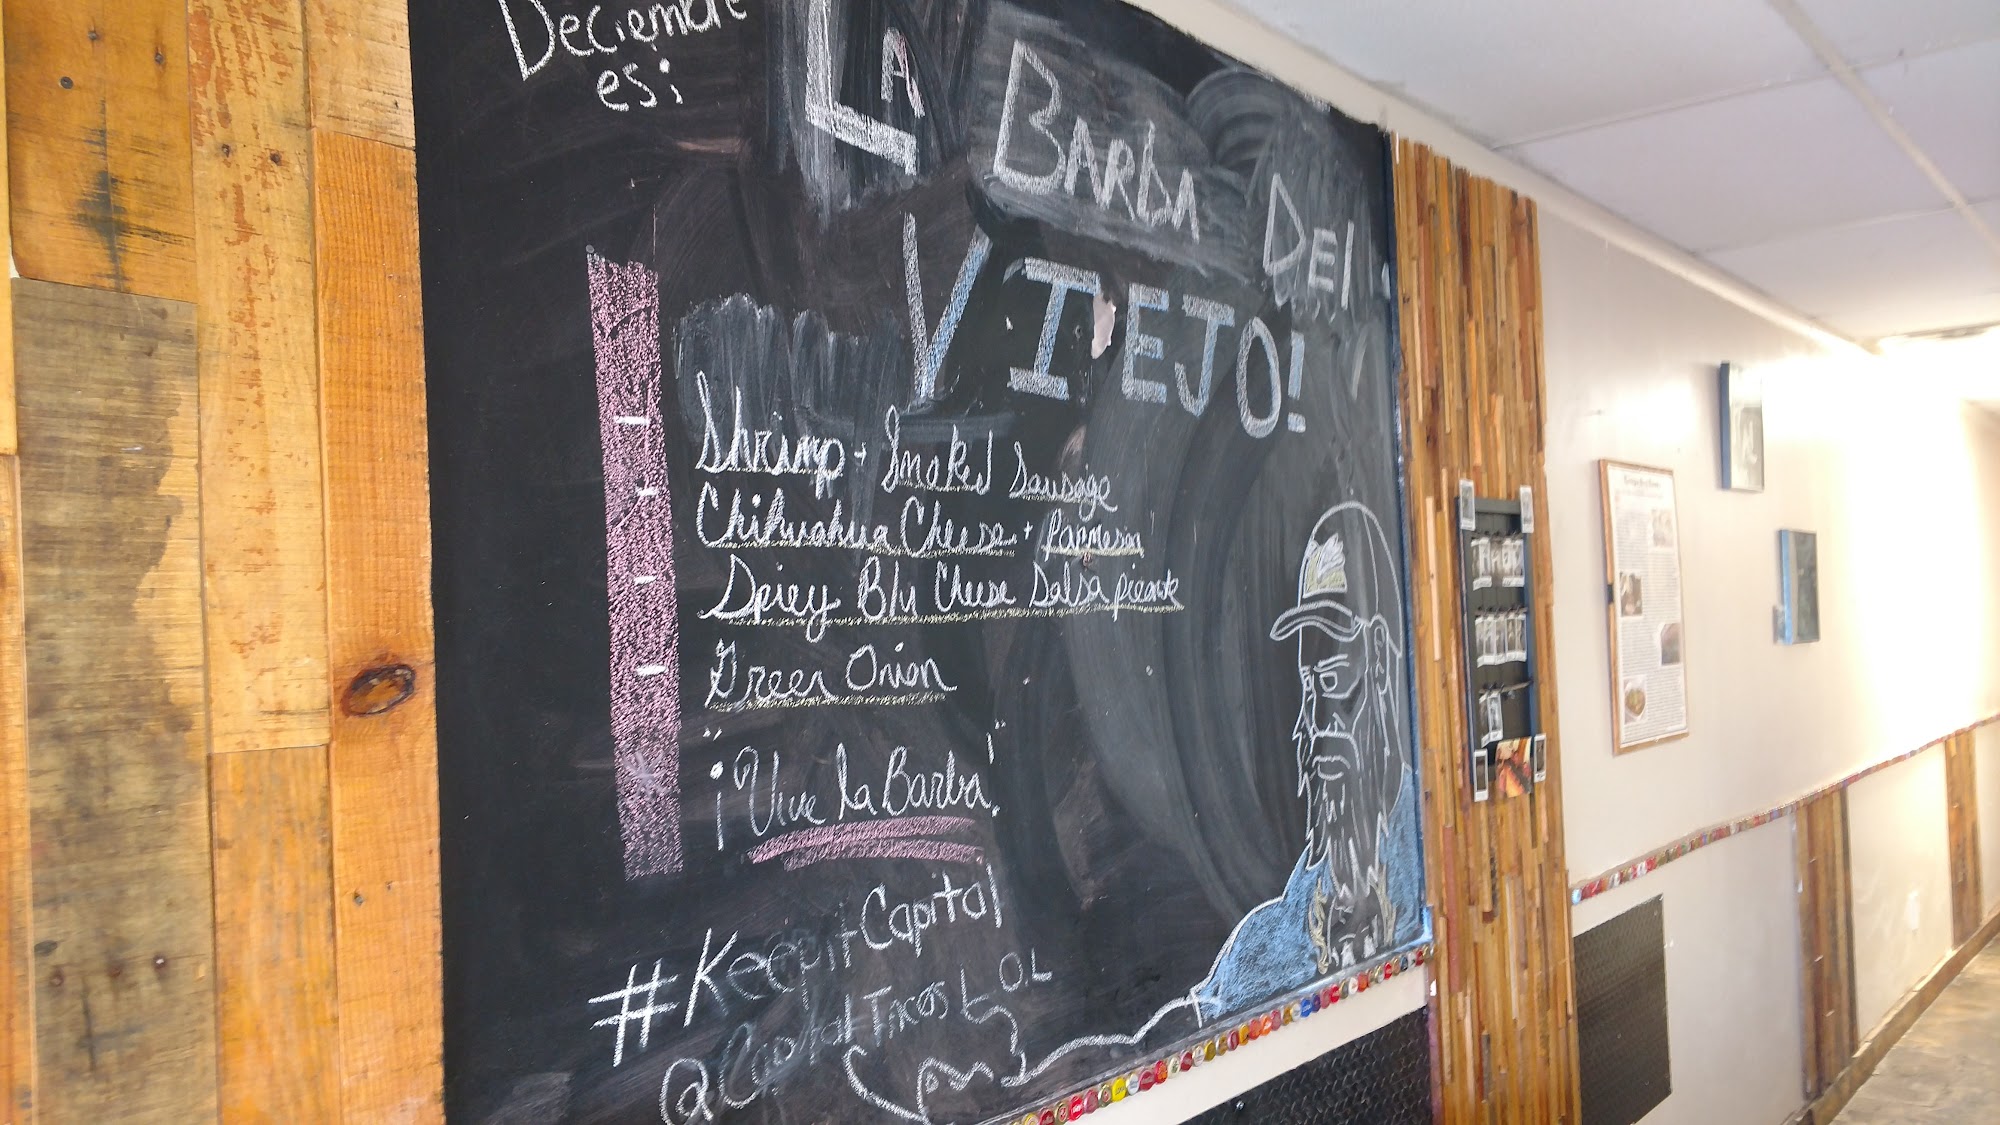 Deciembre
es:
LA BARBA DEl
VIEJO!
Shrimp + Smoked Sausage
Chihuahua Cheese + Parmesan
Spicy Blu Cheese Salsa picante
Green Onion
"¡Vive la Barba!"
#KeepitCapital
@CapitalTacos L.O.L